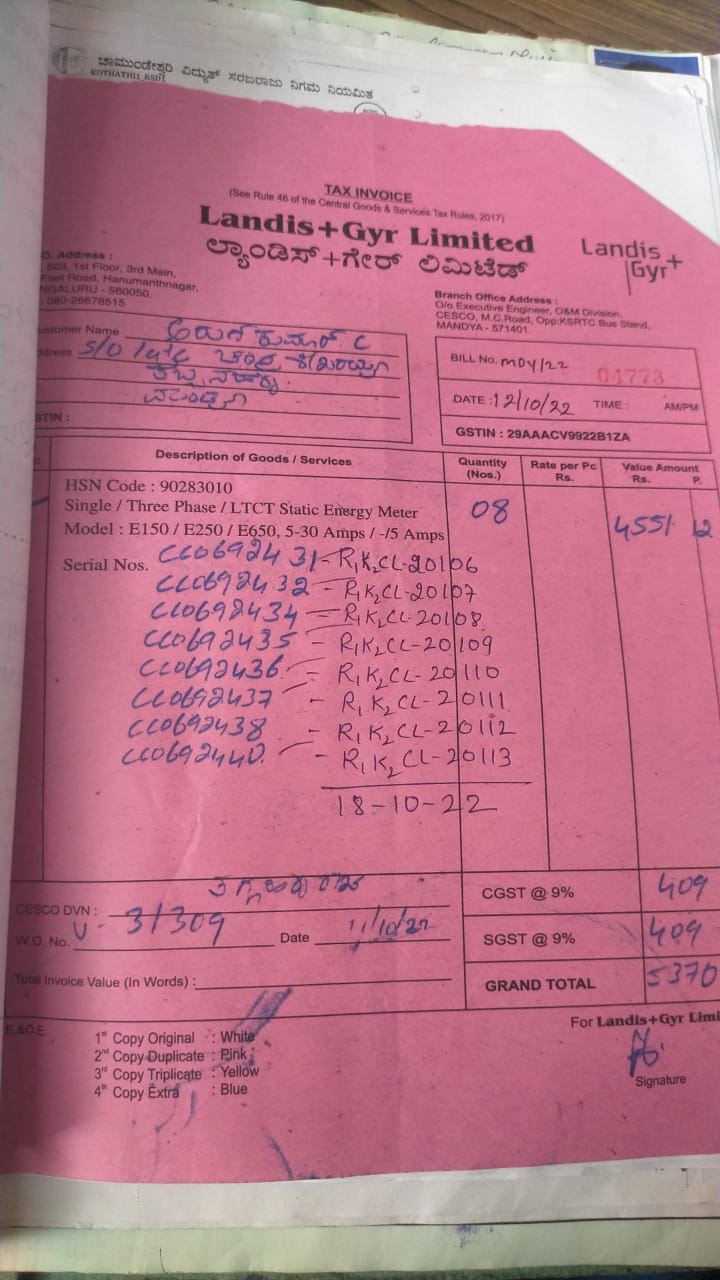 ಚಾಮುಂಡೇಶ್ವರಿ ವಿದ್ಯುತ್ ಸರಬರಾಜು ನಿಗಮ ನಿಯಮಿತ
KOTHATHI1_RSDT
TAX INVOICE
(See Rule 46 of the Central Goods & Services Tax Rules, 2017)
Landis+Gyr Limited
ಲ್ಯಾಂಡಿಸ್+ಗೇರ್ ಲಿಮಿಟೆಡ್
Landis+
Gyr
Address :
503, 1st Floor, 3rd Main,
Road, Hanumanthnagar,
NGALURU - 560050.
080-26678515
Branch Office Address :
O/o Executive Engineer, O&M Division,
CESCO, M.C.Road, Opp:KSRTC Bus Stand,
MANDYA - 571401.
ustomer Name ಅರುಣ ಕುಮಾರ್ C
ddress S/O late
BILL No. MDY/22 04773
DATE : 12/10/22 TIME : AM/PM
STIN :
GSTIN : 29AAACV9922B1ZA
Description of Goods / Services Quantity (Nos.) Rate per Pc Rs. Value Amount Rs. P.
HSN Code : 90283010
Single / Three Phase / LTCT Static Energy Meter 08 4551 12
Model : E150 / E250 / E650, 5-30 Amps / -/5 Amps
Serial Nos. CC069243 1 - R1K2CL-20106
CC0692432 - R1K2CL-20107
CC0692434 - R1K2CL-20108
CC0692435 - R1K2CL-20109
CC0692436 - R1K2CL-20110
CC0692437 - R1K2CL-20111
CC0692438 - R1K2CL-20112
CC0692440 - R1K2CL-20113
18-10-22
CGST @ 9% 409
CESCO DVN :
W.O. No. U - 31309 Date 11/10/22
SGST @ 9% 409
Total Invoice Value (In Words) :
GRAND TOTAL 5370
E.&O.E.
For Landis+Gyr Limi
1st Copy Original : White
2nd Copy Duplicate : Pink
3rd Copy Triplicate : Yellow
4th Copy Extra : Blue
Signature